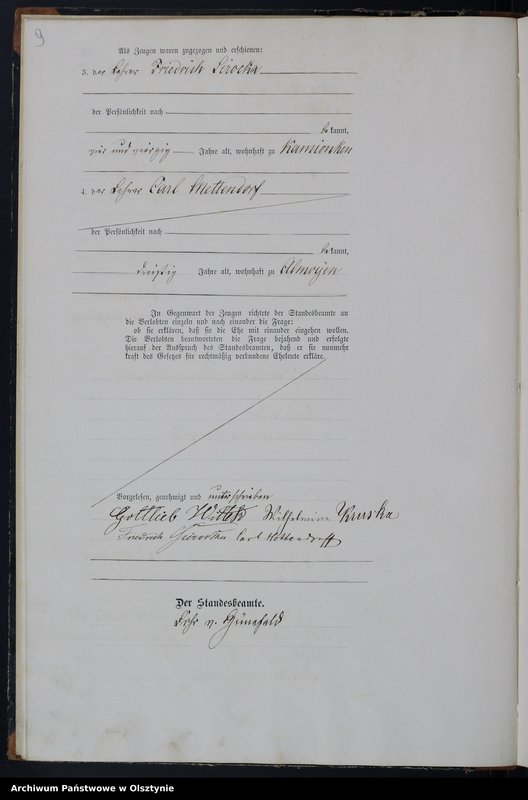 9
Als Zeugen waren zugezogen und erschienen:
3. der Lehrer Friedrich Sirocka
der Persönlichkeit nach
be kannt,
vier und vierzig Jahre alt, wohnhaft zu Kamionken
4. der Lehrer Carl Mettendorf
der Persönlichkeit nach
be kannt,
dreißig Jahre alt, wohnhaft zu Almoyen
In Gegenwart der Zeugen richtete der Standesbeamte an
die Verlobten einzeln und nach einander die Frage:
ob sie erklären, daß sie die Ehe mit einander eingehen wollen.
Die Verlobten beantworteten die Frage bejahend und erfolgte
hierauf der Ausspruch des Standesbeamten, daß er sie nunmehr
kraft des Gesetzes für rechtmäßig verbundene Eheleute erkläre.
Vorgelesen, genehmigt und unterschrieben
Gottlieb Wilhelmine Kruska
Friedrich Carl Mettendorff
Der Standesbeamte.
Frhr v.
Archiwum Państwowe w Olsztynie